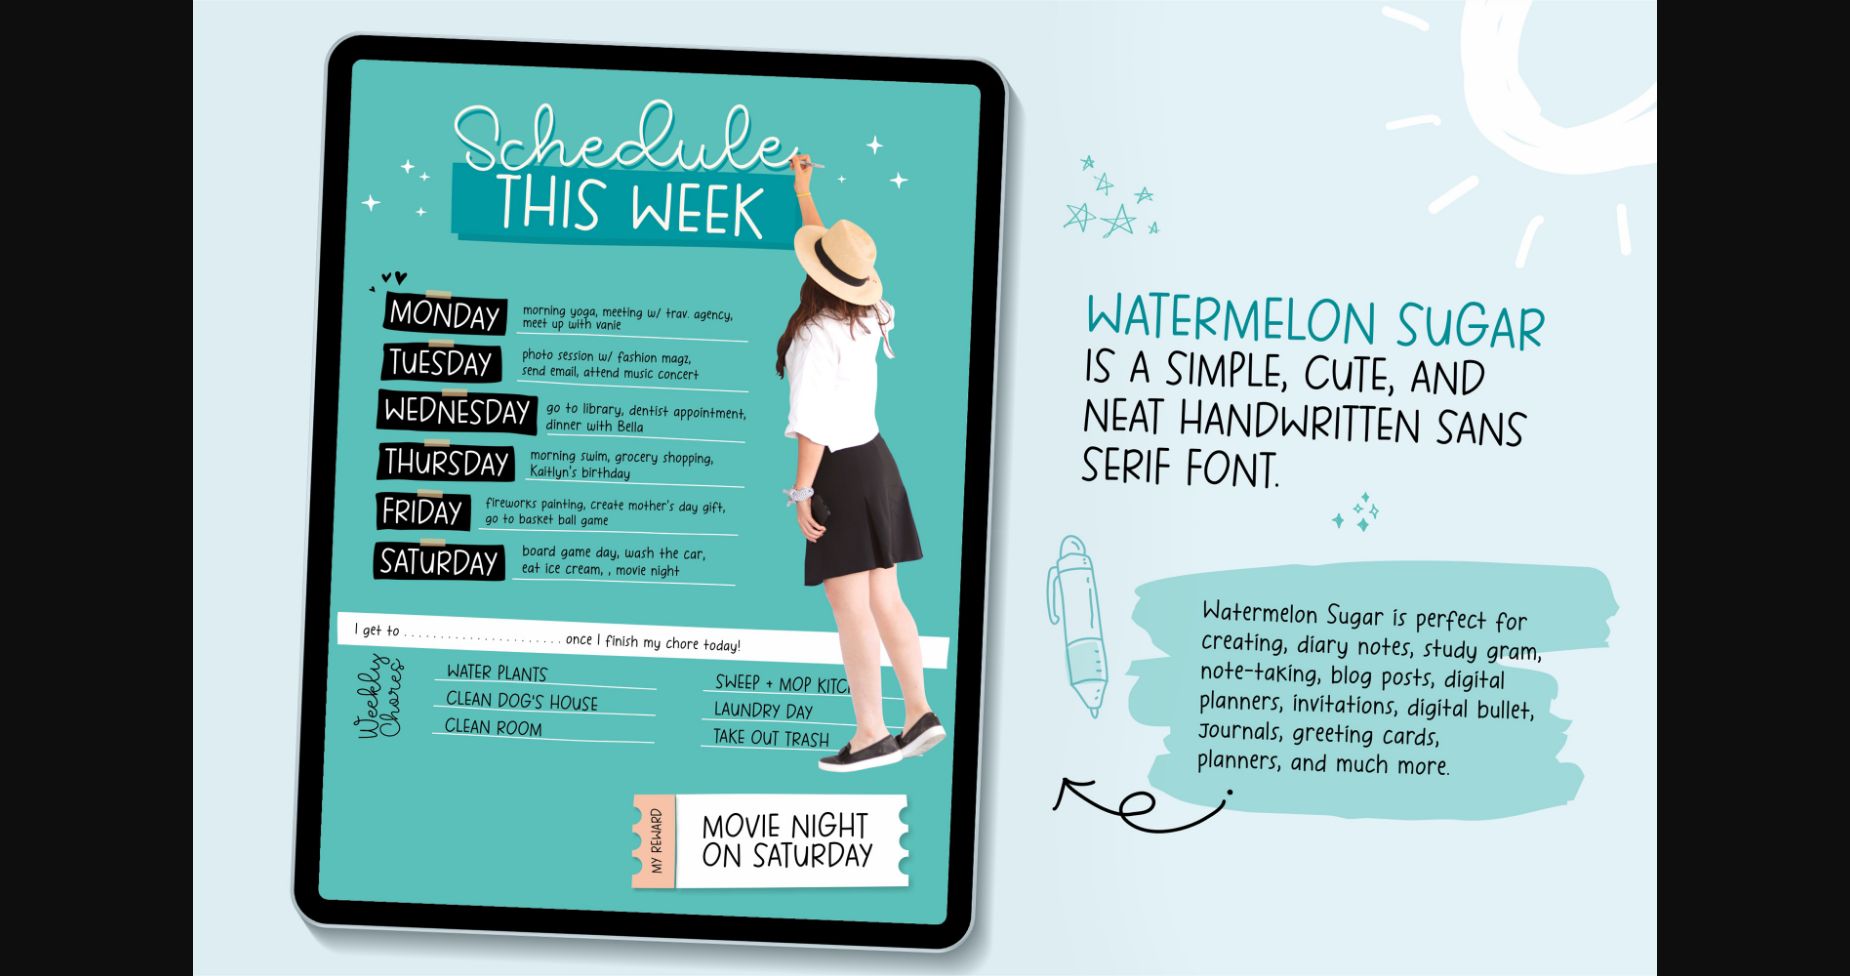 Schedule
THIS WEEK
MONDAY
morning yoga, meeting w/ trav. agency,
meet up with vanie
TUESDAY
photo session w/ fashion magz,
send email, attend music concert
WEDNESDAY
go to library, dentist appointment,
dinner with Bella
THURSDAY
morning swim, grocery shopping,
Kaitlyn's birthday
FRIDAY
fireworks painting, create mother's day gift,
go to basket ball game
SATURDAY
board game day, wash the car,
eat ice cream, , movie night
I get to ...................... once I finish my chore today!
Weekly
Chores
WATER PLANTS
CLEAN DOG'S HOUSE
CLEAN ROOM
SWEEP + MOP KITC
LAUNDRY DAY
TAKE OUT TRASH
MY REWARD
MOVIE NIGHT
ON SATURDAY
WATERMELON SUGAR
IS A SIMPLE, CUTE, AND
NEAT HANDWRITTEN SANS
SERIF FONT.
Watermelon Sugar is perfect for
creating, diary notes, study gram,
note-taking, blog posts, digital
planners, invitations, digital bullet,
Journals, greeting cards,
planners, and much more.